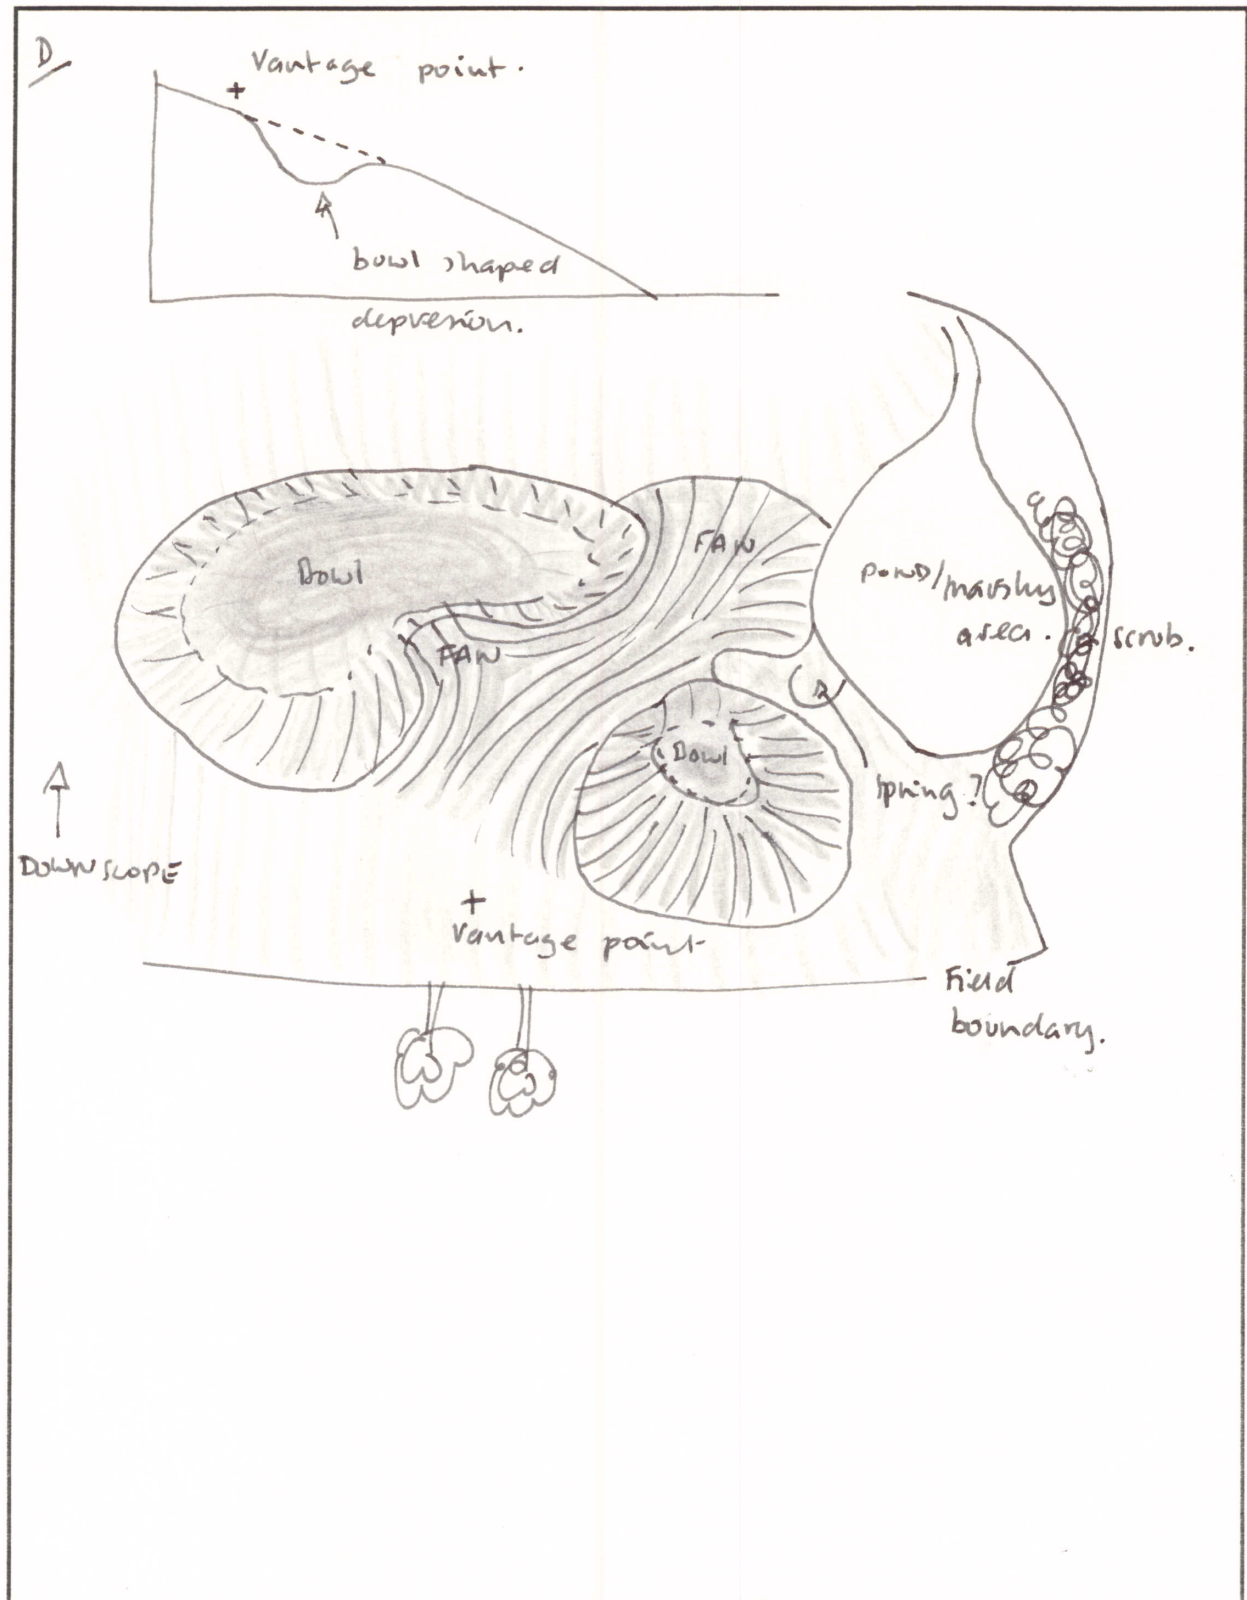 D
Vantage point.
bowl shaped
depression.
Bowl
FAN
FAN
pond/marshy
area.
scrub.
Bowl
spring?
DOWNSLOPE
Vantage point
Field
boundary.